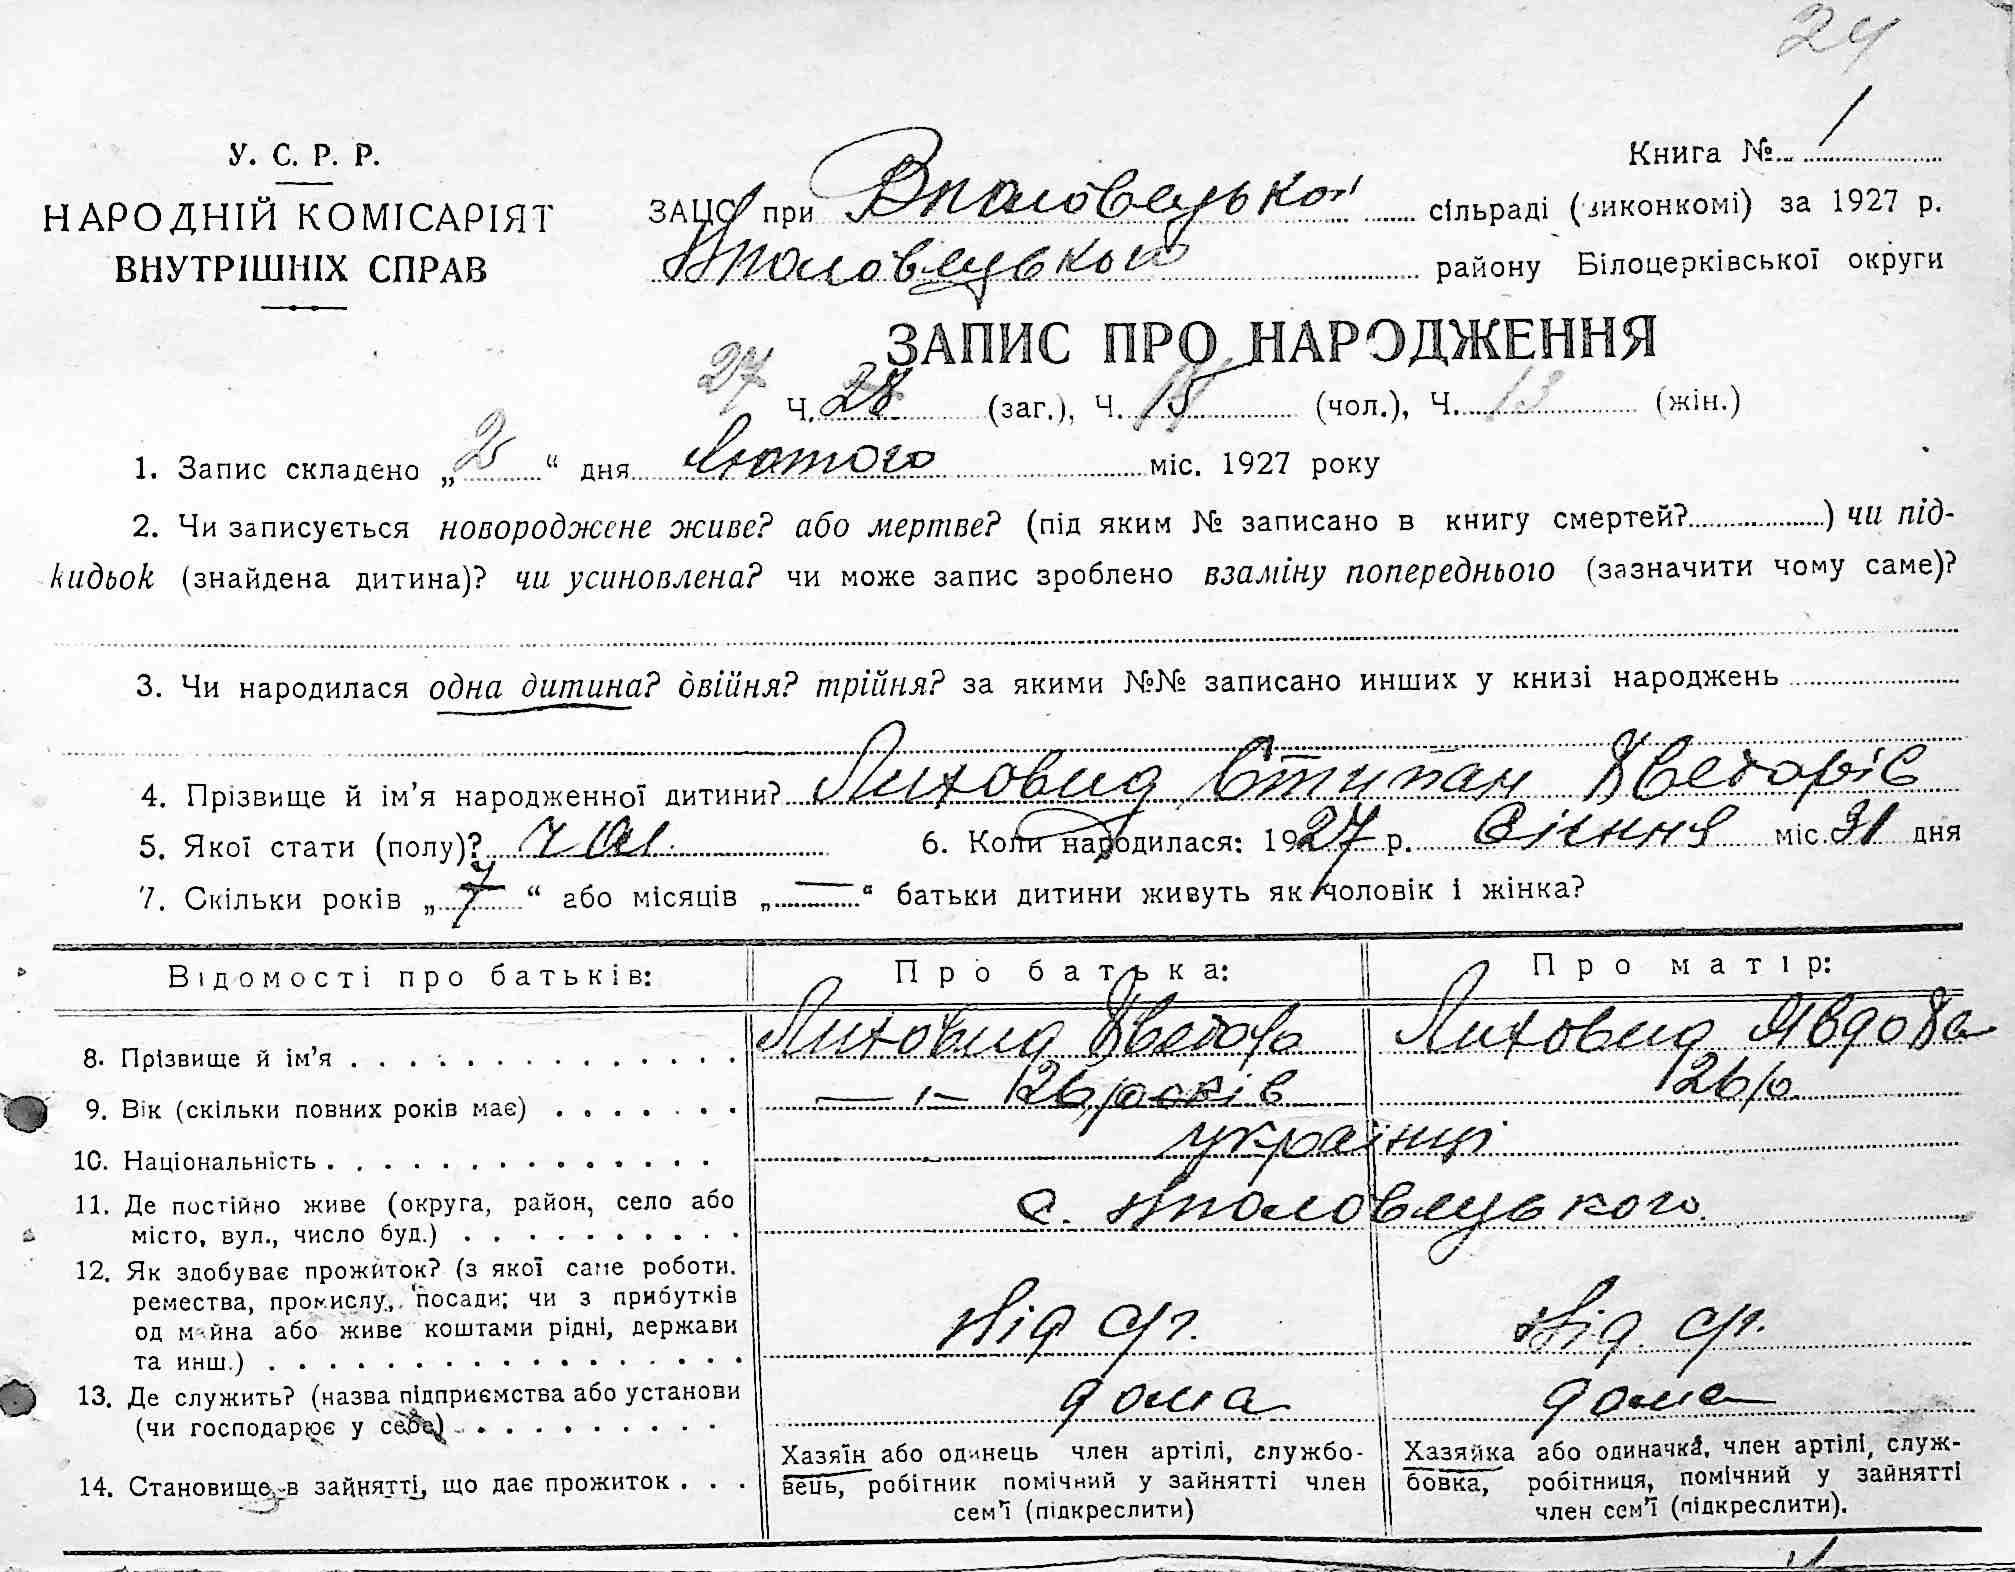 24
У. С. Р. Р.
НАРОДНІЙ КОМІСАРІЯТ
ВНУТРІШНІХ СПРАВ
Книга № 1
ЗАЦС при Вполовецькой сільраді (виконкомі) за 1927 р.
Вполовецького району Білоцерківської округи
ЗАПИС ПРО НАРОДЖЕННЯ
27
Ч. 28 (заг.), Ч. 15 (чол.), Ч. 13 (жін.)
1. Запис складено „2“ дня Лютого міс. 1927 року
2. Чи записується новороджене живе? або мертве? (під яким № записано в книгу смертей?) чи під-
кидьок (знайдена дитина)? чи усиновлена? чи може запис зроблено взаміну попереднього (зазначити чому саме)?
3. Чи народилася одна дитина? двійня? трійня? за якими №№ записано инших у книзі народжень
4. Прізвище й ім’я народженної дитини? Лиховид Стипан Хведорів
5. Якої стати (полу)? чол. 6. Коли народилася: 1927 р. Січння міс. 31 дня
7. Скільки років „7“ або місяців „—“ батьки дитини живуть як чоловік і жінка?
Відомості про батьків: Про батька: Про матір:
8. Прізвище й ім’я Лиховид Хведора Лиховид Явдоха
9. Вік (скільки повних років має) 26 років 26 р.
10. Національність українці
11. Де постійно живе (округа, район, село або
місто, вул., число буд.) с. Вполовецького
12. Як здобуває прожиток? (з якої саме роботи.
ремества, промислу, посади; чи з прибутків
од майна або живе коштами рідні, держави
та инш.) Від с/г. Від с/г.
13. Де служить? (назва підприємства або установи
(чи господарює у себе) дома дома
14. Становище в зайнятті, що дає прожиток
Хазяїн або одинець член артілі, службо-
вець, робітник помічний у зайнятті член
сем’ї (підкреслити)
Хазяйка або одиначка, член артілі, служ-
бовка, робітниця, помічний у зайнятті
член сем’ї (підкреслити).